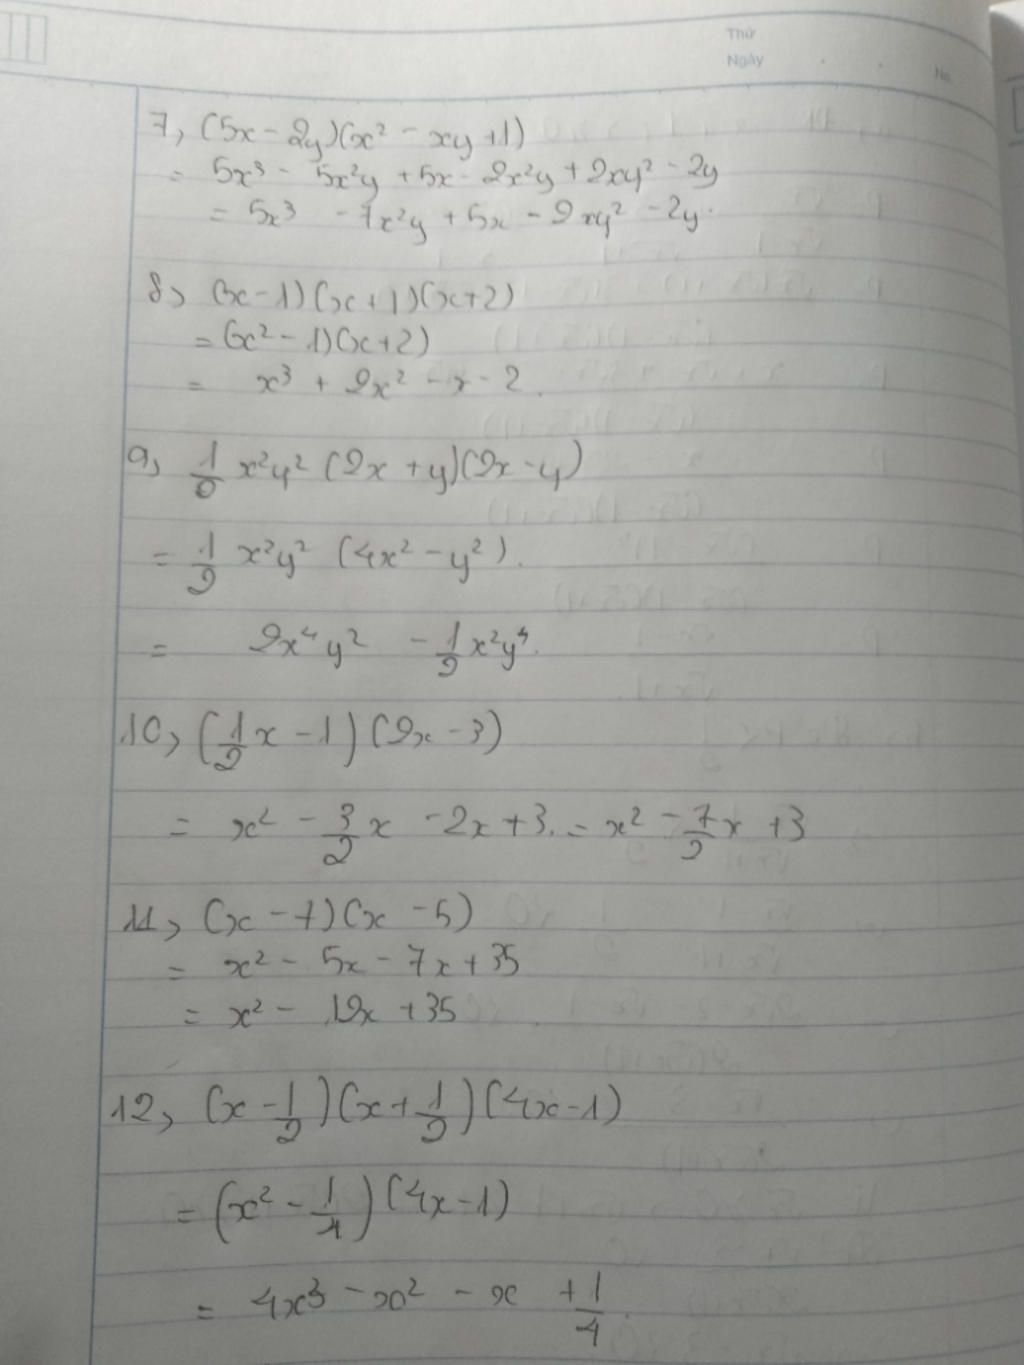 Thứ
Ngày
No.
7, (5x - 2y)(x² - xy + 1)
= 5x³ - 5x²y + 5x - 2x²y + 2xy² - 2y
= 5x³ - 7x²y + 5x - 2xy² - 2y.
8, (x - 1)(x + 1)(x + 2)
= (x² - 1)(x + 2)
= x³ + 2x² - x - 2.
9, 1/2 x²y² (2x + y)(2x - y)
= 1/2 x²y² (4x² - y²).
= 2x⁴y² - 1/2 x²y⁴.
10, (1/2 x - 1)(2x - 3)
= x² - 3/2 x - 2x + 3. = x² - 7/2 x + 3
11, (x - 7)(x - 5)
= x² - 5x - 7x + 35
= x² - 12x + 35
12, (x - 1/2)(x + 1/2)(4x - 1)
= (x² - 1/4)(4x - 1)
= 4x³ - x² - x + 1/4.